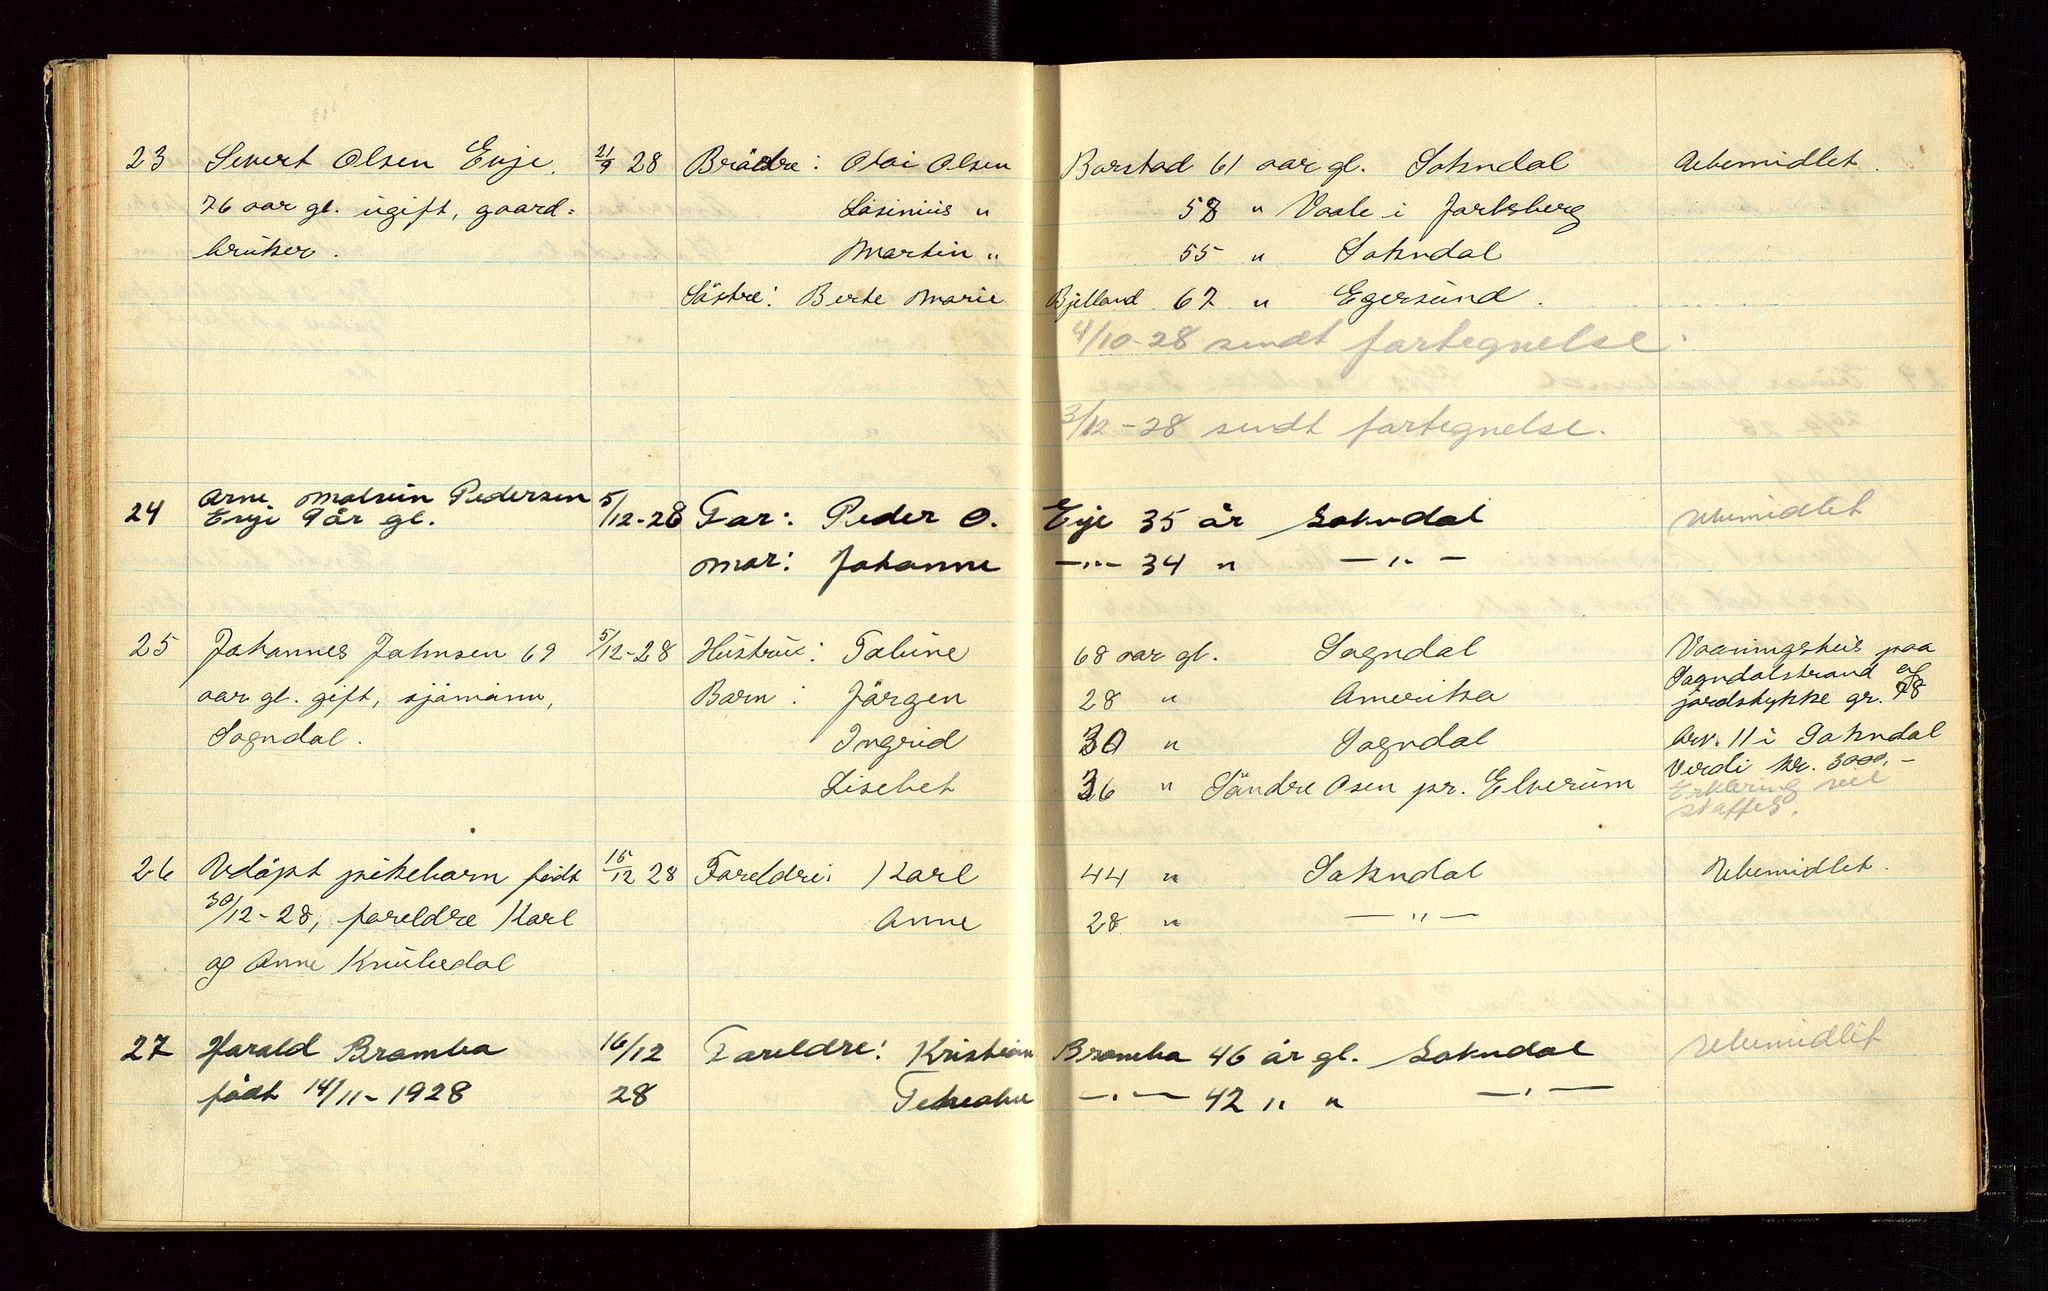 23 Sivert Olsen Evje. 21/9 28 Brödre: Olai Olsen Barstad 61 aar gl. Sokndal Ubemidlet.
76 aar gl. ugift, gaard= Lasinius " 58 " Vaale i Jarlsberg
bruker. Martin " 55 " Sokndal
Söstre: Berte Marie Bjelland 67 " Egersund.
4/10-28 sendt fortegnelse.
3/12-28 sendt fortegnelse.
24 Arne Pedersen 5/12-28 Far: Peder O. Evje 35 år Sokndal Ubemidlet
Evje 9 år gl.
Mor: Johanne -"- 34 " -"-
25 Johannes Johnsen 69 5/12-28 Hustru: Tabine 68 aar gl. Sogndal Vaaningshus paa
aar gl. gift, sjömann, Barn: Jörgen 28 " Amerika Sogndalstrand og
jordstykke gr. 78
Sogndal. Ingrid 30 " Sogndal brv. 11 i Sokndal
Verdi kr. 3000,-
Lisebet 36 " Söndre Osen pr. Elverum Erklæring vil
skaffes.
26 Udöpt pikebarn född 15/12 28 Foreldre: Karl 44 " Sokndal Ubemidlet.
30/12-28, foreldre Karl Anne 28 " -"-
og Anne Knubedal
27 Harald Bramba 16/12 Foreldre: Kristian Bramba 46 år gl. Sokndal Ubemidlet
födt 14/11-1928 28 -"- 42 " " -"-